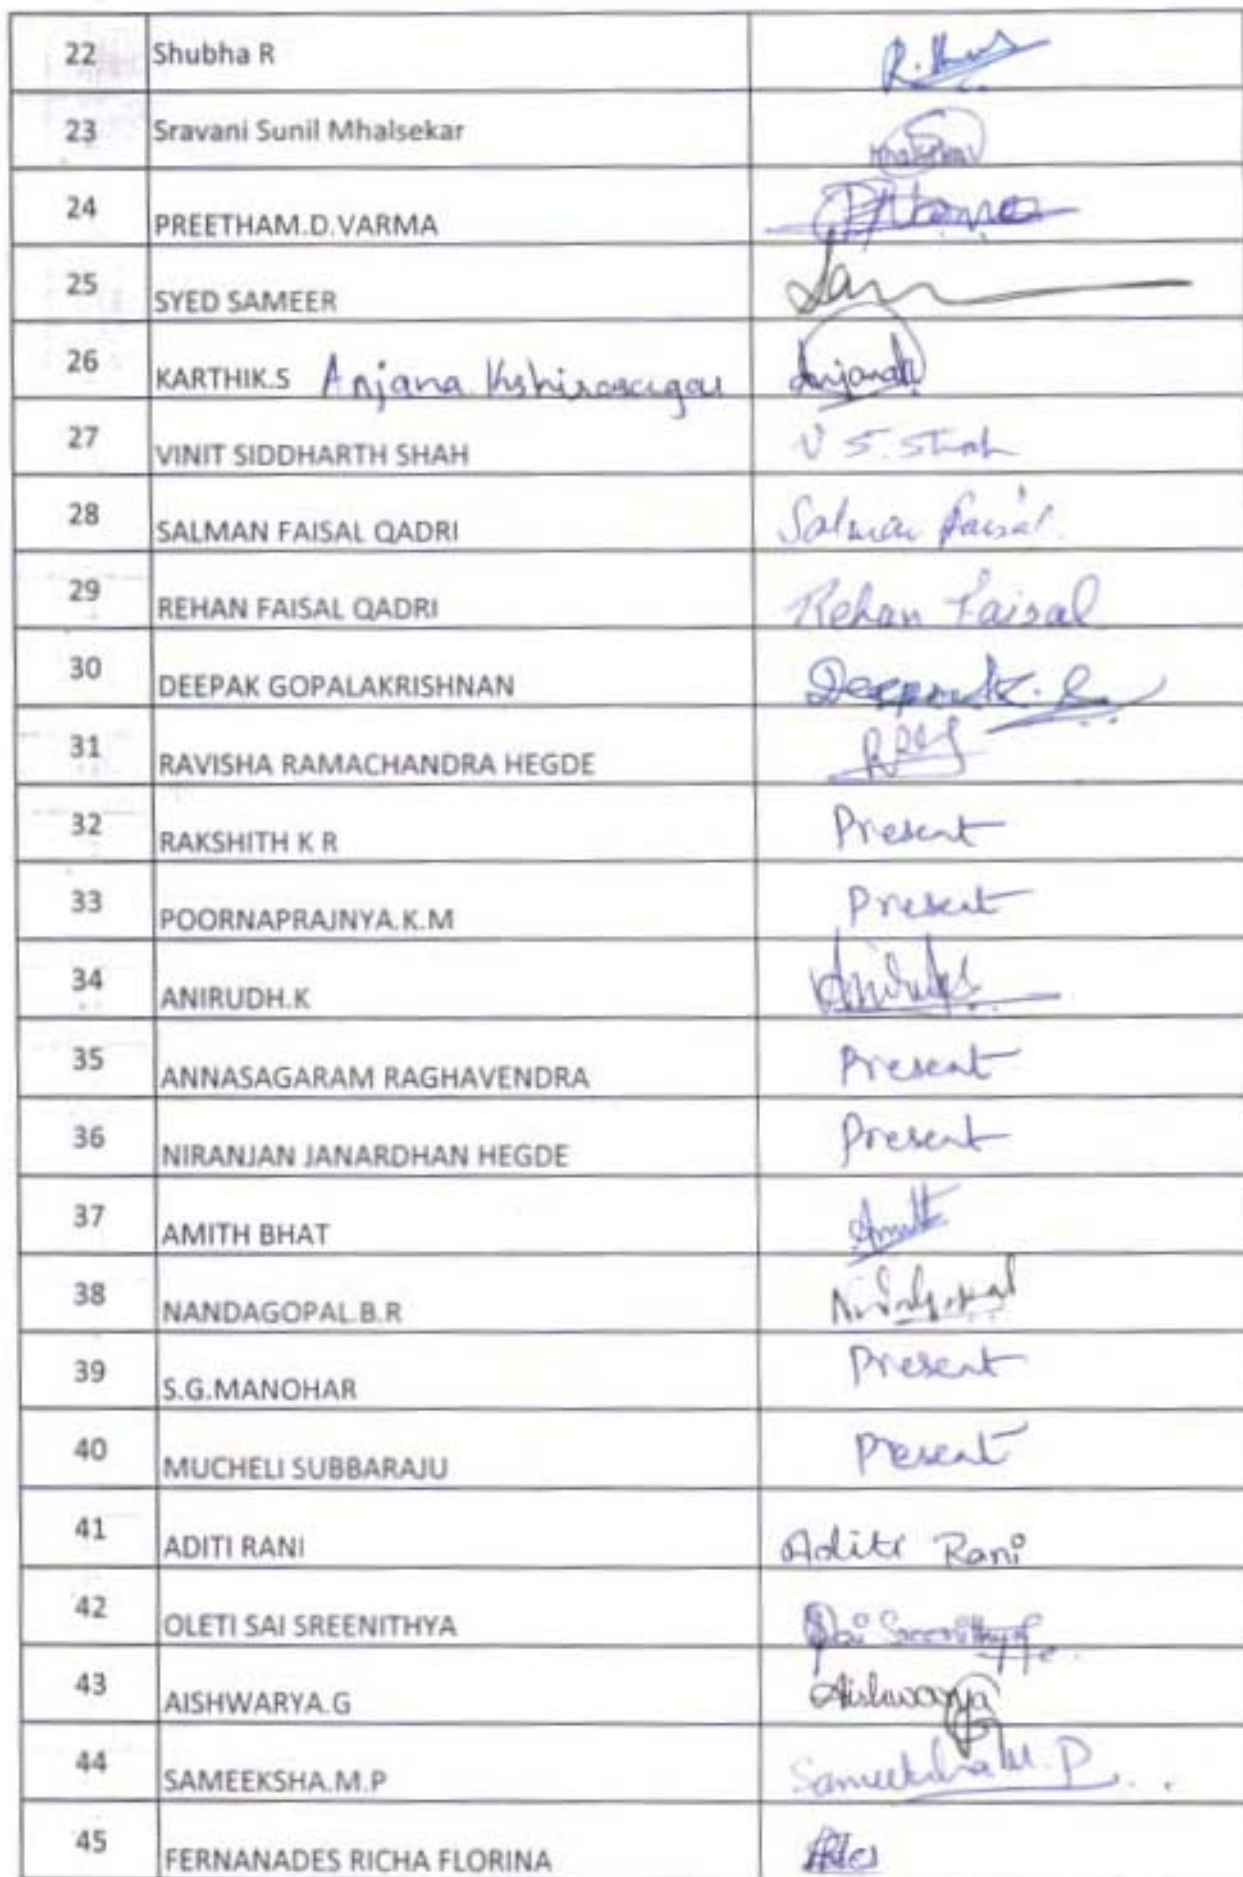 22 Shubha R R.
23 Sravani Sunil Mhalsekar
24 PREETHAM.D.VARMA
25 SYED SAMEER
26 KARTHIK.S Anjana Kshirasagar Anjana
27 VINIT SIDDHARTH SHAH V S. Shah
28 SALMAN FAISAL QADRI Salman Faisal.
29 REHAN FAISAL QADRI Rehan Faisal
30 DEEPAK GOPALAKRISHNAN Deepak. G
31 RAVISHA RAMACHANDRA HEGDE
32 RAKSHITH K R Present
33 POORNAPRAJNYA.K.M Present
34 ANIRUDH.K Anirudh
35 ANNASAGARAM RAGHAVENDRA Present
36 NIRANJAN JANARDHAN HEGDE Present
37 AMITH BHAT Amith
38 NANDAGOPAL.B.R
39 S.G.MANOHAR Present
40 MUCHELI SUBBARAJU Present
41 ADITI RANI Aditi Rani
42 OLETI SAI SREENITHYA Sai Sreenithya
43 AISHWARYA.G Aishwarya
44 SAMEEKSHA.M.P Sameeksha M.P
45 FERNANADES RICHA FLORINA